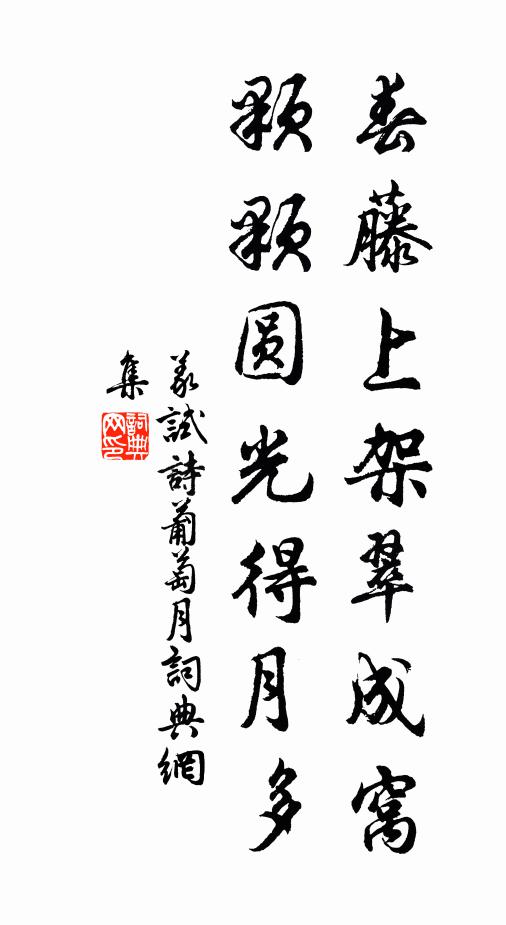 春藤上架翠成窩
顆顆圓光得月多
義試詩葡萄月詞典網
集
詞典
网印